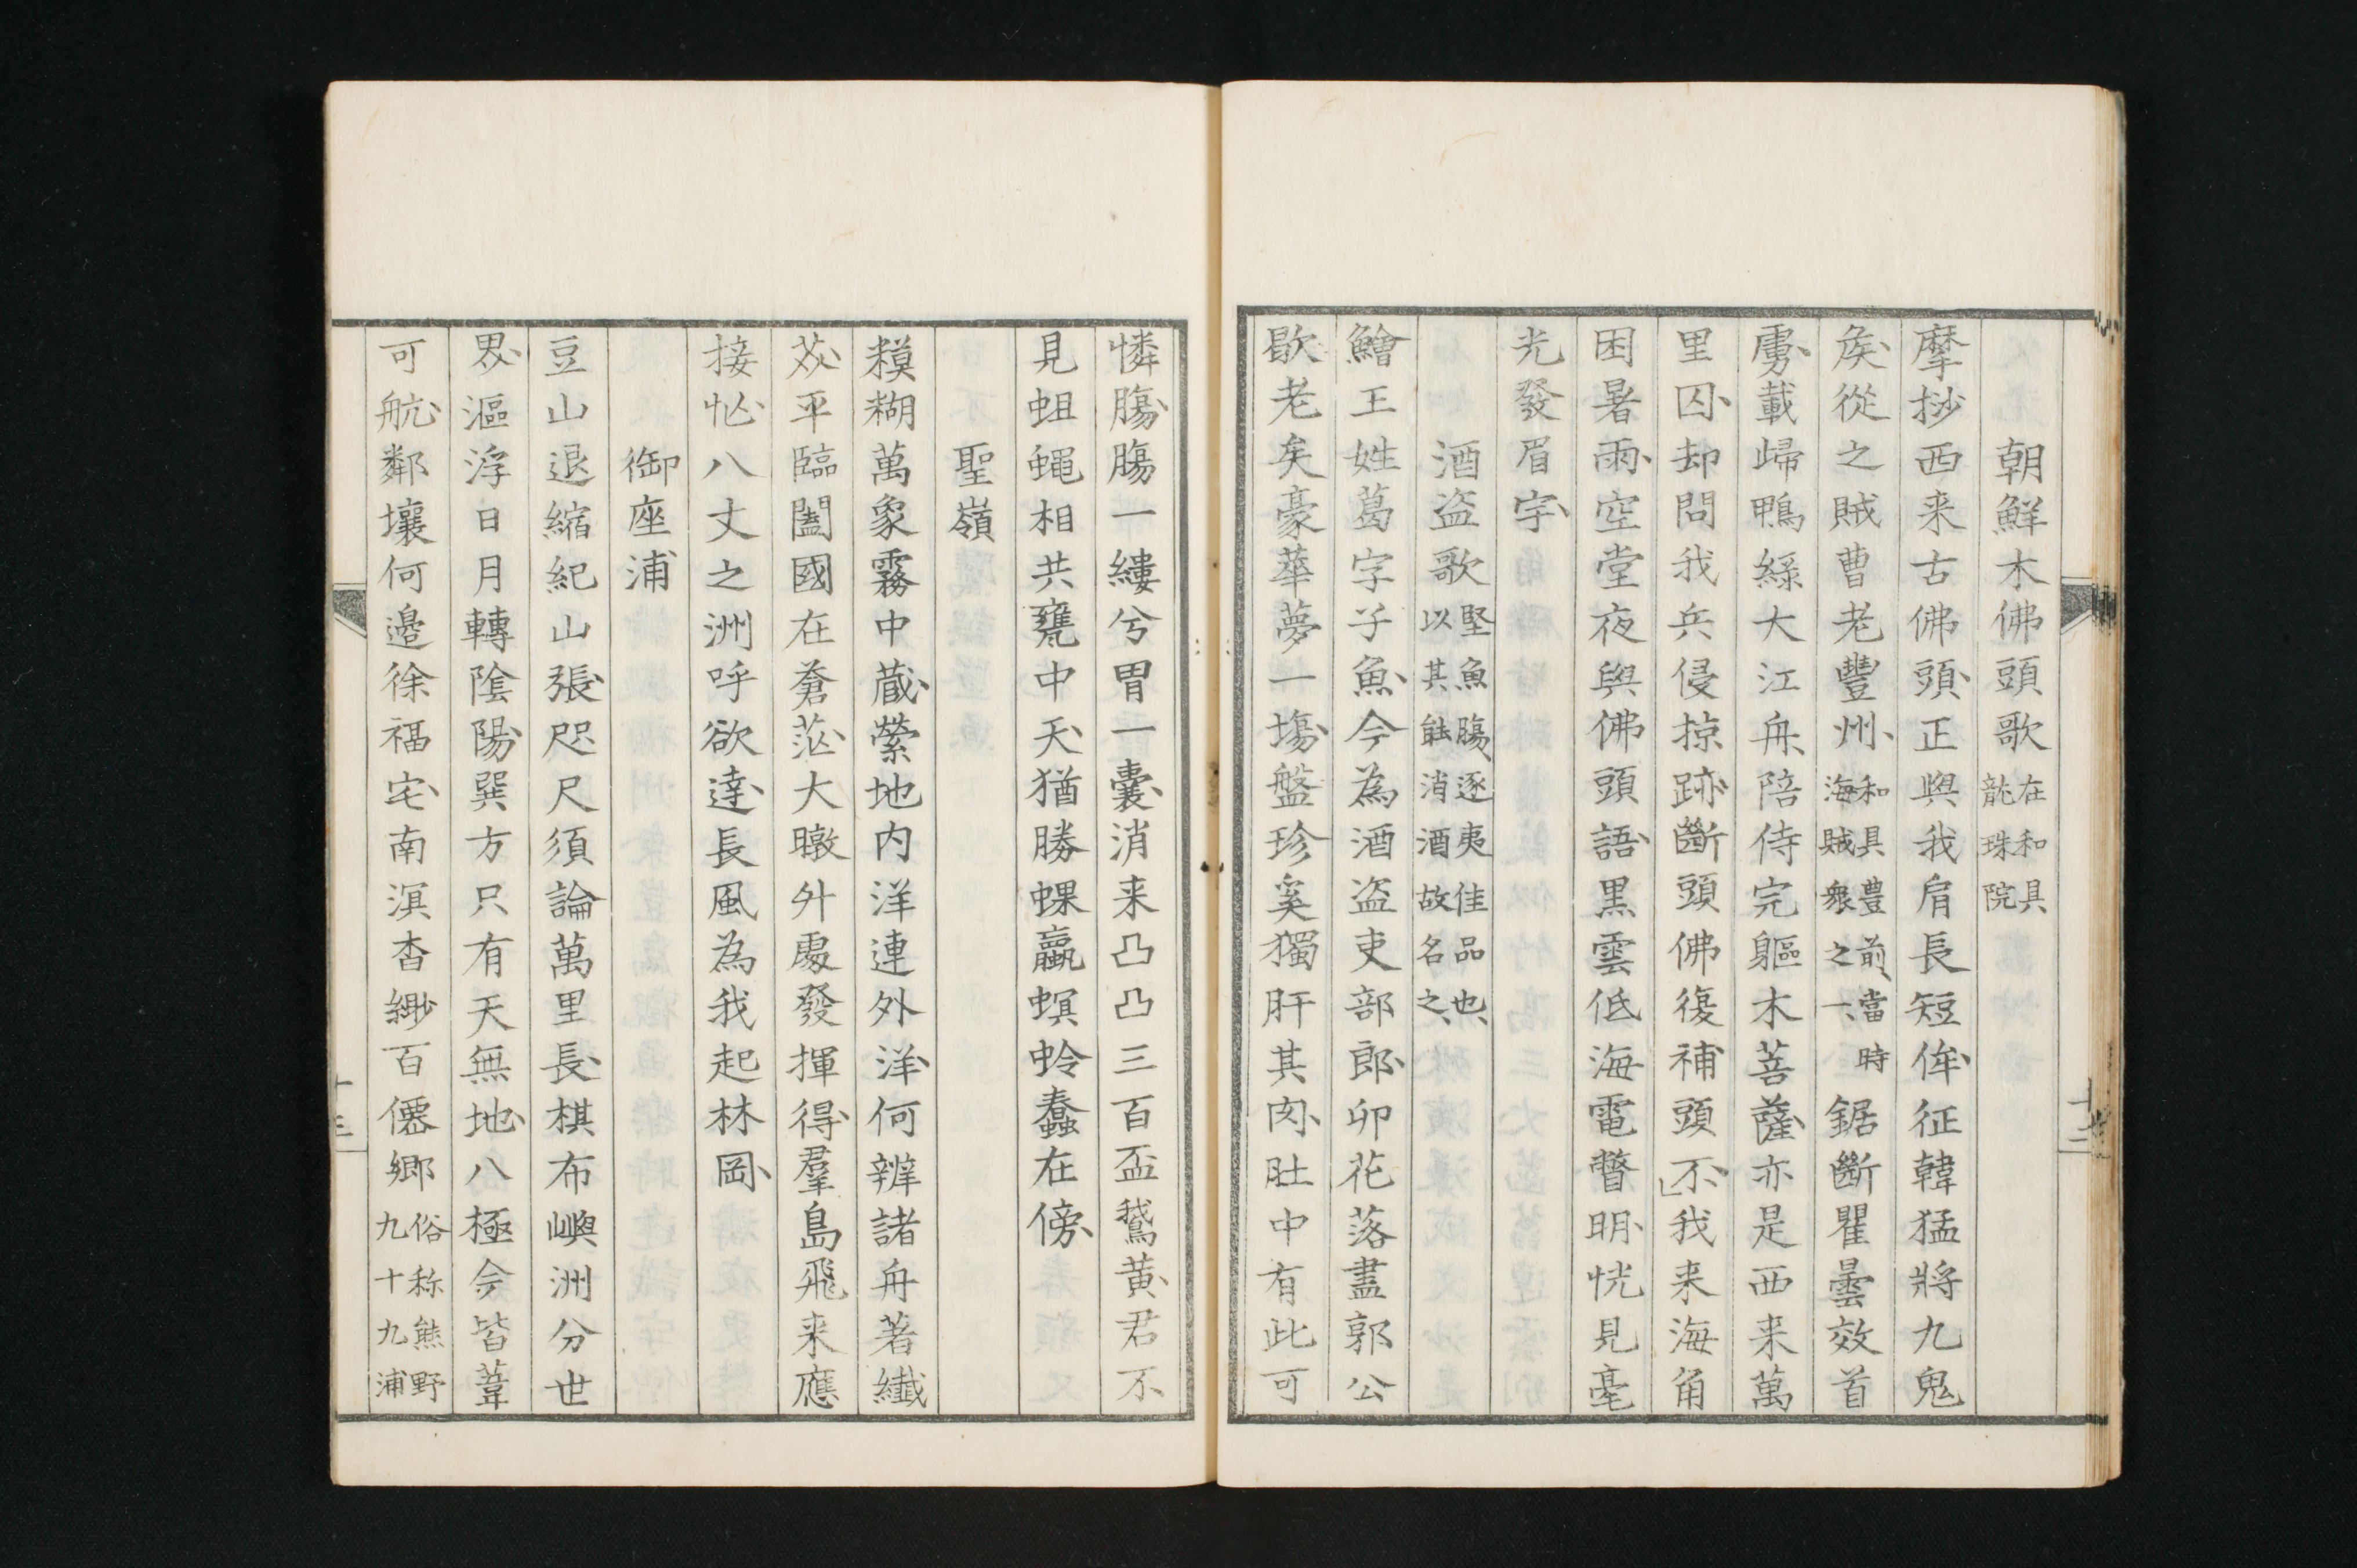 朝鮮木佛頭歌 在和具龍珠院
摩挱西来古佛頭、正與我肩長短侔、征韓猛將九鬼
矦、從之賊曹老豐州、和具豊前、當時海賊衆之一、鋸斷瞿曇效首
虜、載歸鴨綠大江舟、陪侍完軀木菩薩、亦是西来萬
里囚、却問我兵侵掠跡、斷頭佛復補頭不、」我来海角
困暑雨、空堂夜與佛頭語、黒雲低海電瞥明、恍見毫
光發眉宇、
酒盗歌 堅魚膓、逐夷佳品也、以其能消酒故名之、
鱠王姓葛字子魚、今為酒盗吏部郎、卯花落盡郭公
歇、老矣豪華夢一塲、盤珍奚獨肝其肉、肚中有此可
憐膓、膓一縷兮胃一嚢、消来凸凸三百盃、鵞黄君不
見蛆蠅相共甕中天、猶勝蜾蠃螟蛉蠢在傍、
聖嶺
糢糊萬象霧中蔵、縈地内洋連外洋、何辨諸舟著纖
芥、平臨闔國在蒼茫、大暾外處發揮得、羣島飛来應
接忙、八丈之洲呼欲達、長風為我起林岡、
御座浦
豆山退縮紀山張、咫尺須論萬里長、棋布嶼洲分世
界、漚浮日月轉陰陽、巽方只有天無地、八極今皆葦
可航、鄰壤何邉徐福宅、南溟杳緲百僊郷 俗称熊野九十九浦
十二
十三